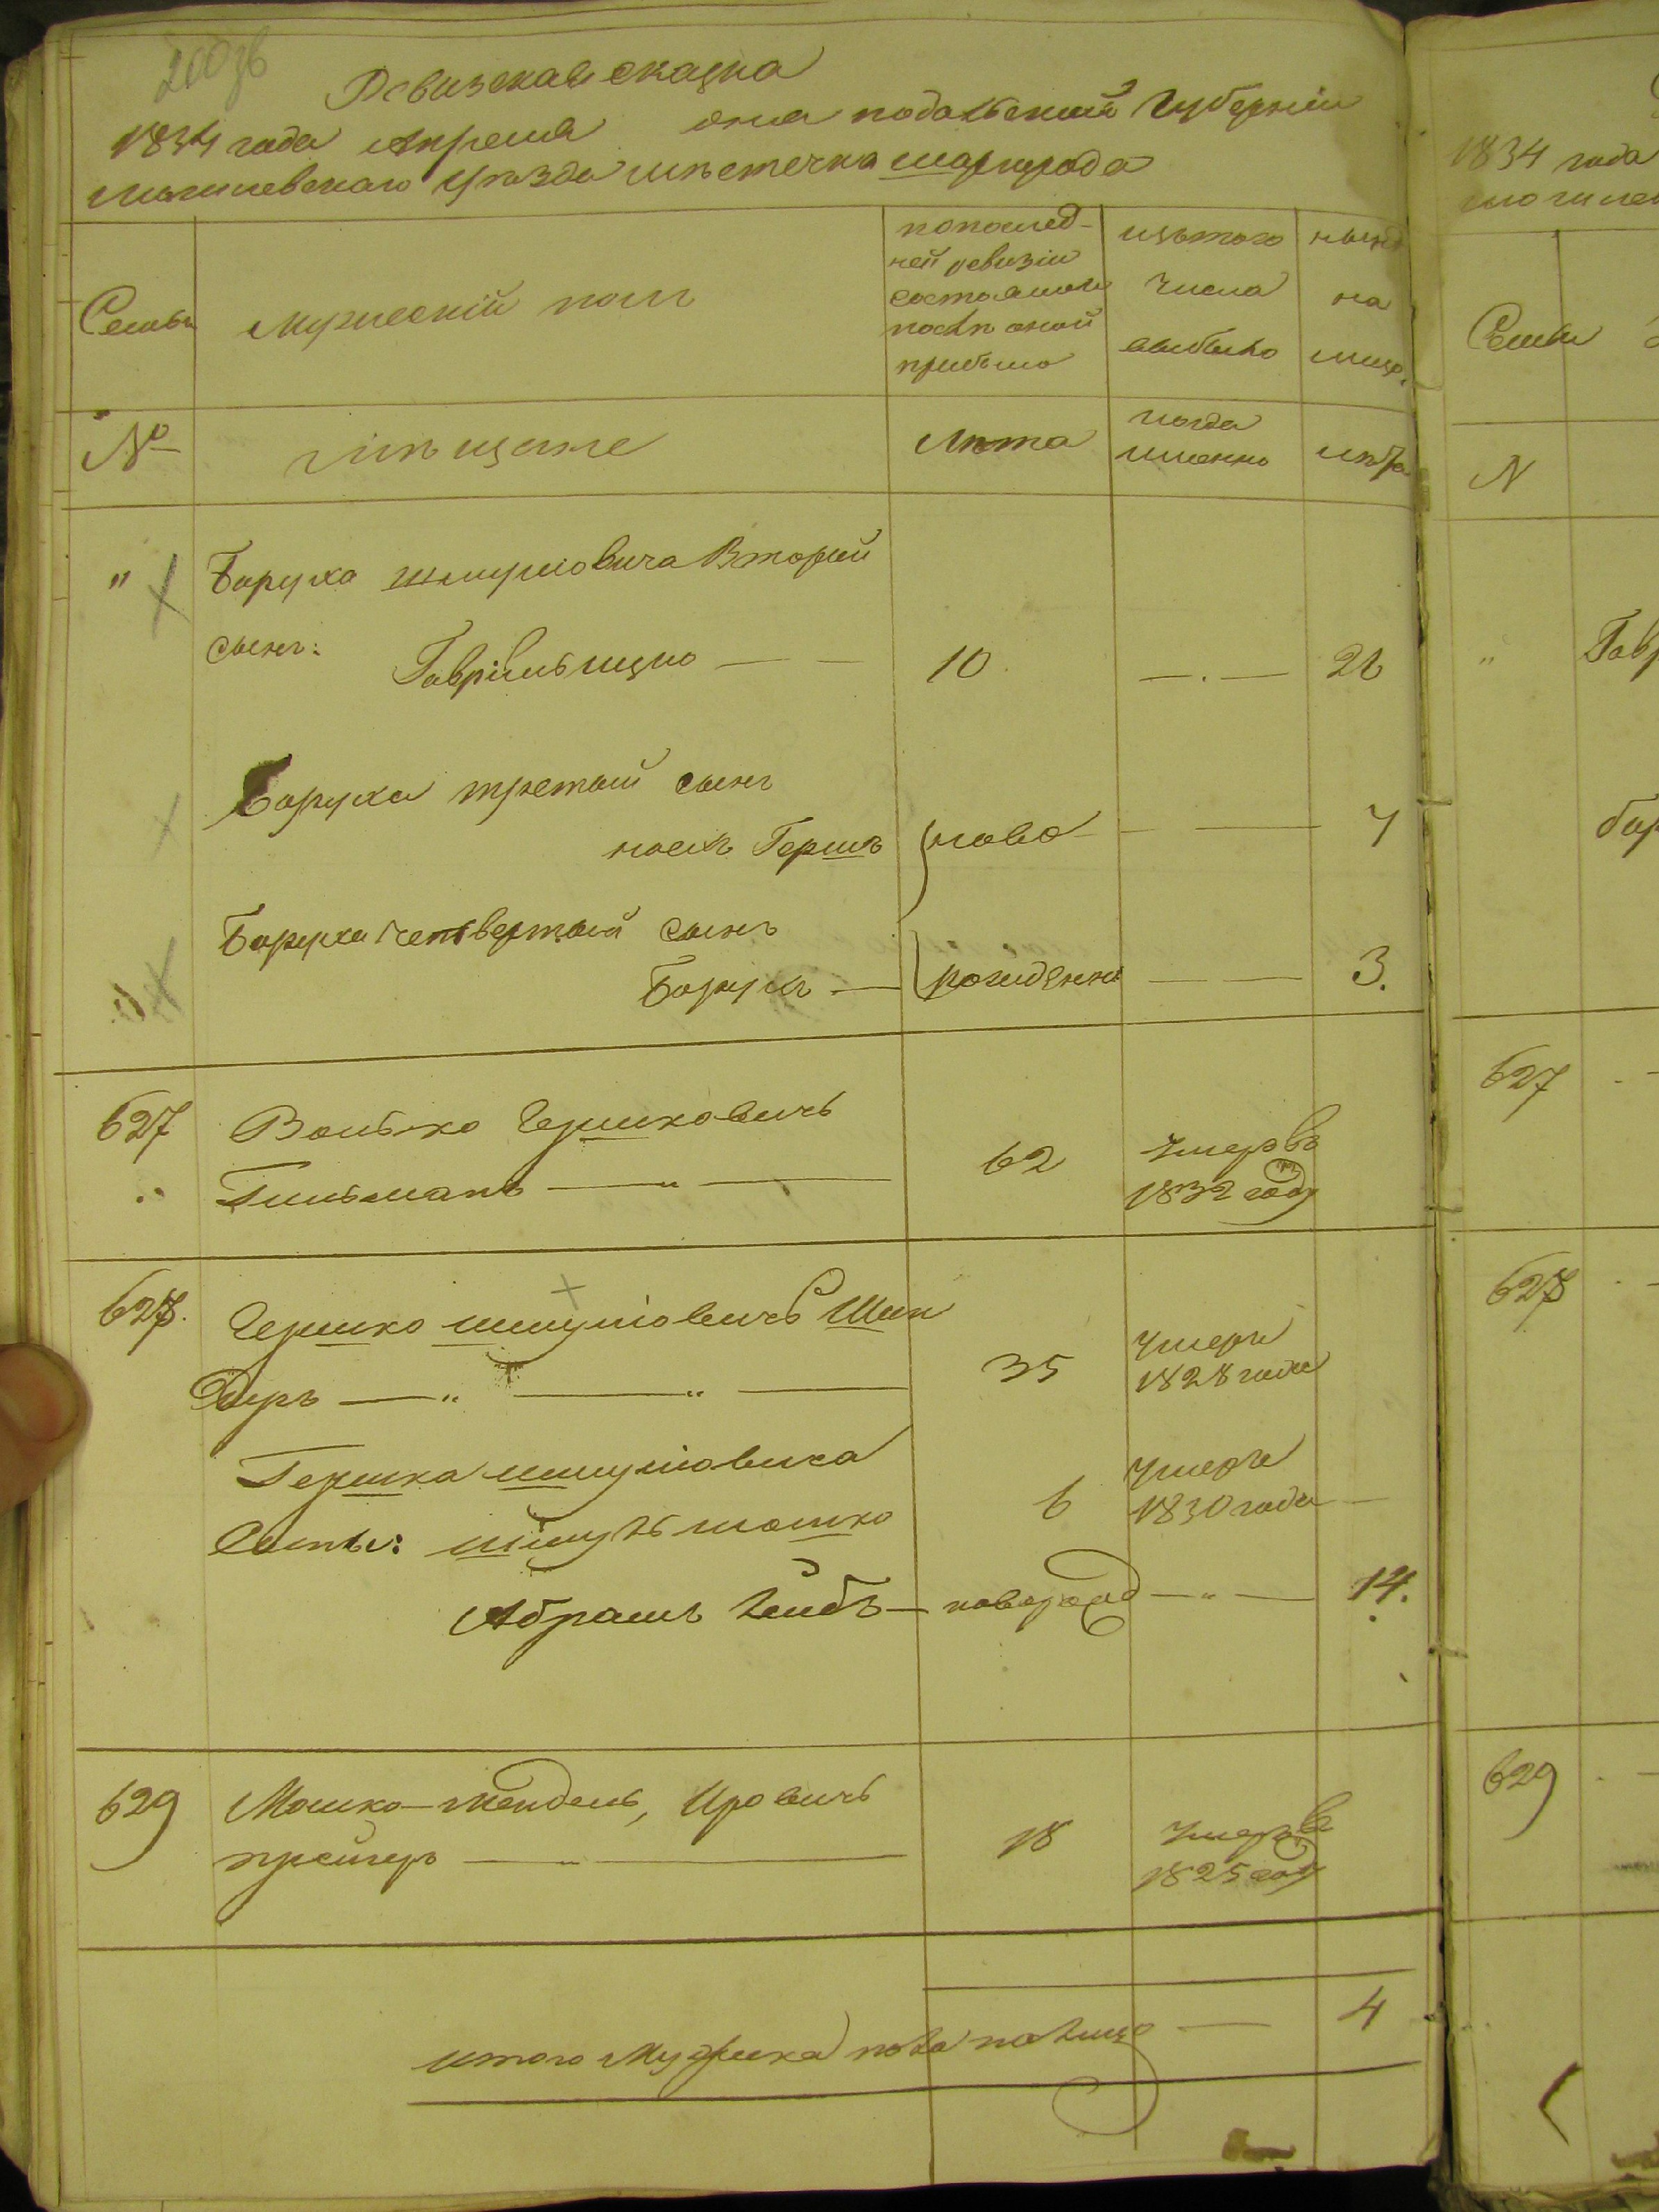 200зв
Ревизская сказка
1834 года Апреля дня подольской Губернии
могилевского уезда местечка шаргорода
Семьи
мужеский пол
по послед-
ней ревизіи
состояло и
после оной
прибыло
изътого
числа
выбыло
ныне
на
лицо.
№
мѣщане
Лѣта
когда
именно
лѣта
" Баруха шмулiовича Второй
сынъ: Гаврiиль ицко — — 10 —.— 26
Баруха третый сынъ
иосиъ Гершъ ново — — 7
Баруха четвертый сынъ
Борухъ — рожденны — — 3.
627 Волько Гершковичъ
Гительманъ —„— 62 умеръ въ
1832 году
628. Гершко шмулiовичъ Шин
деръ —„—„— 35 умеръ
1828 года
Гершка шмулiовича
Сыны: шмуль мошко 6 умеръ
1830 года —
Абрамъ Лейбъ — новорожд —„— 14.
629 Мошко-мендель, Иговичъ
трейгеръ —„— 18 умеръ въ
1825 году
итого Мужеска пола налицо — 4
1834 года
Семьи
N
" Гавр
бар
627
628
629